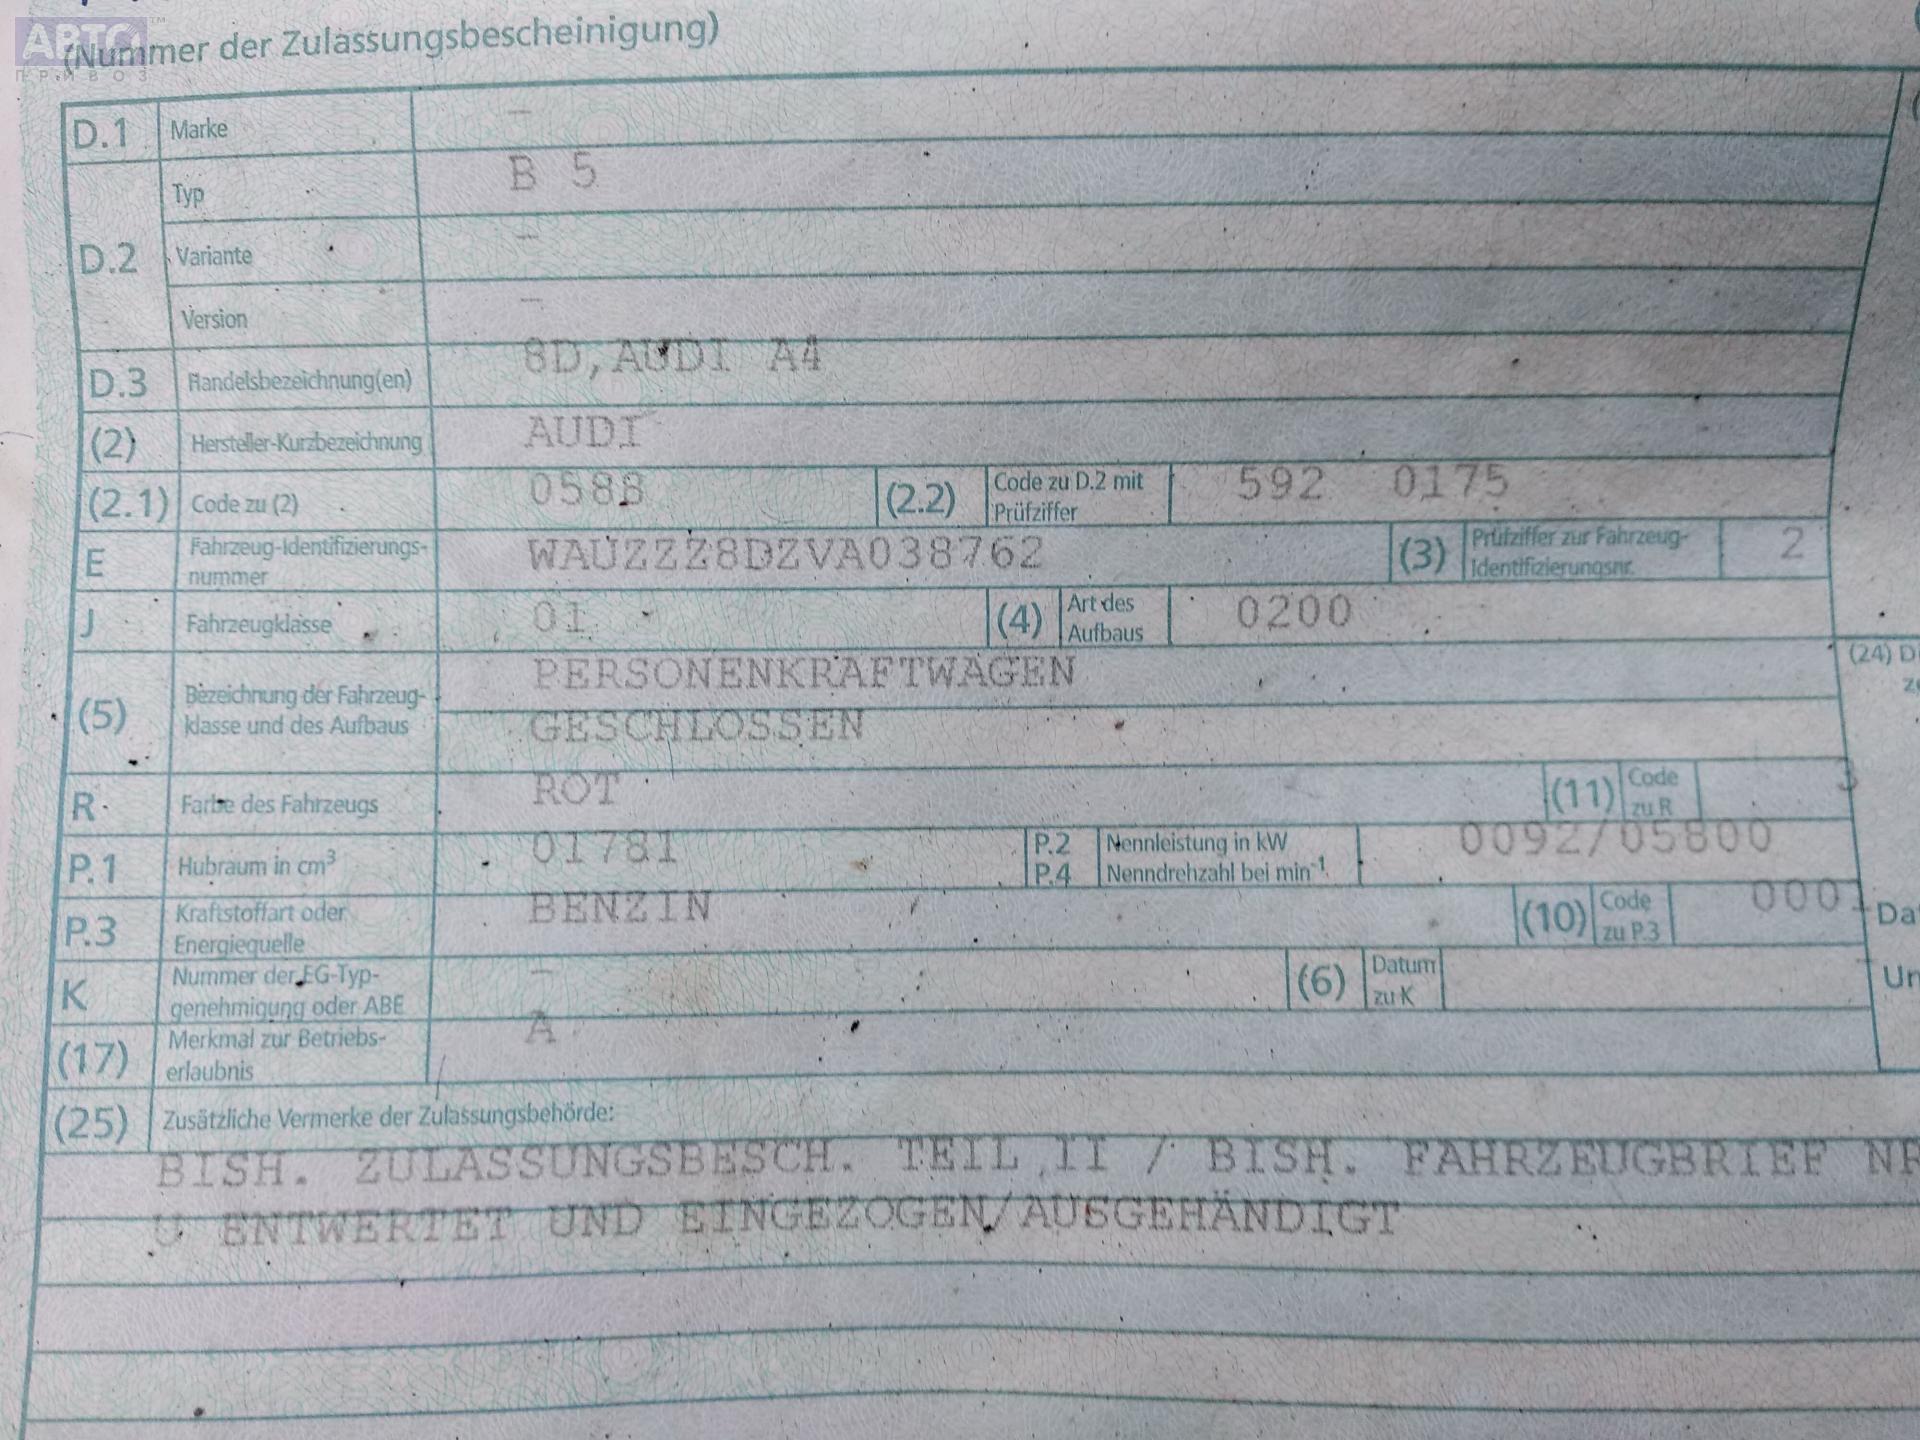 АВТО™
ПРИВОЗ
(Nummer der Zulassungsbescheinigung)
D.1 Marke –
D.2 Typ B 5
Variante –
Version –
D.3 Handelsbezeichnung(en) 8D,AUDI A4
(2) Hersteller-Kurzbezeichnung AUDI
(2.1) Code zu (2) 0588 (2.2) Code zu D.2 mit Prüfziffer 592 0175
E Fahrzeug-Identifizierungs-nummer WAUZZZ8DZVA038762 (3) Prüfziffer zur Fahrzeug-Identifizierungsnr. 2
J Fahrzeugklasse 01 (4) Art des Aufbaus 0200
(5) Bezeichnung der Fahrzeug-klasse und des Aufbaus PERSONENKRAFTWAGEN
GESCHLOSSEN
(24) D
R Farbe des Fahrzeugs ROT (11) Code zu R 3
P.1 Hubraum in cm³ 01781 P.2 Nennleistung in kW P.4 Nenndrehzahl bei min⁻¹ 0092/05800
P.3 Kraftstoffart oder Energiequelle BENZIN (10) Code zu P.3 0001
Da
K Nummer der EG-Typ-genehmigung oder ABE – (6) Datum zu K –
Un
(17) Merkmal zur Betriebs-erlaubnis A
(25) Zusätzliche Vermerke der Zulassungsbehörde:
BISH. ZULASSUNGSBESCH. TEIL II / BISH. FAHRZEUGBRIEF NR
U ENTWERTET UND EINGEZOGEN/AUSGEHÄNDIGT